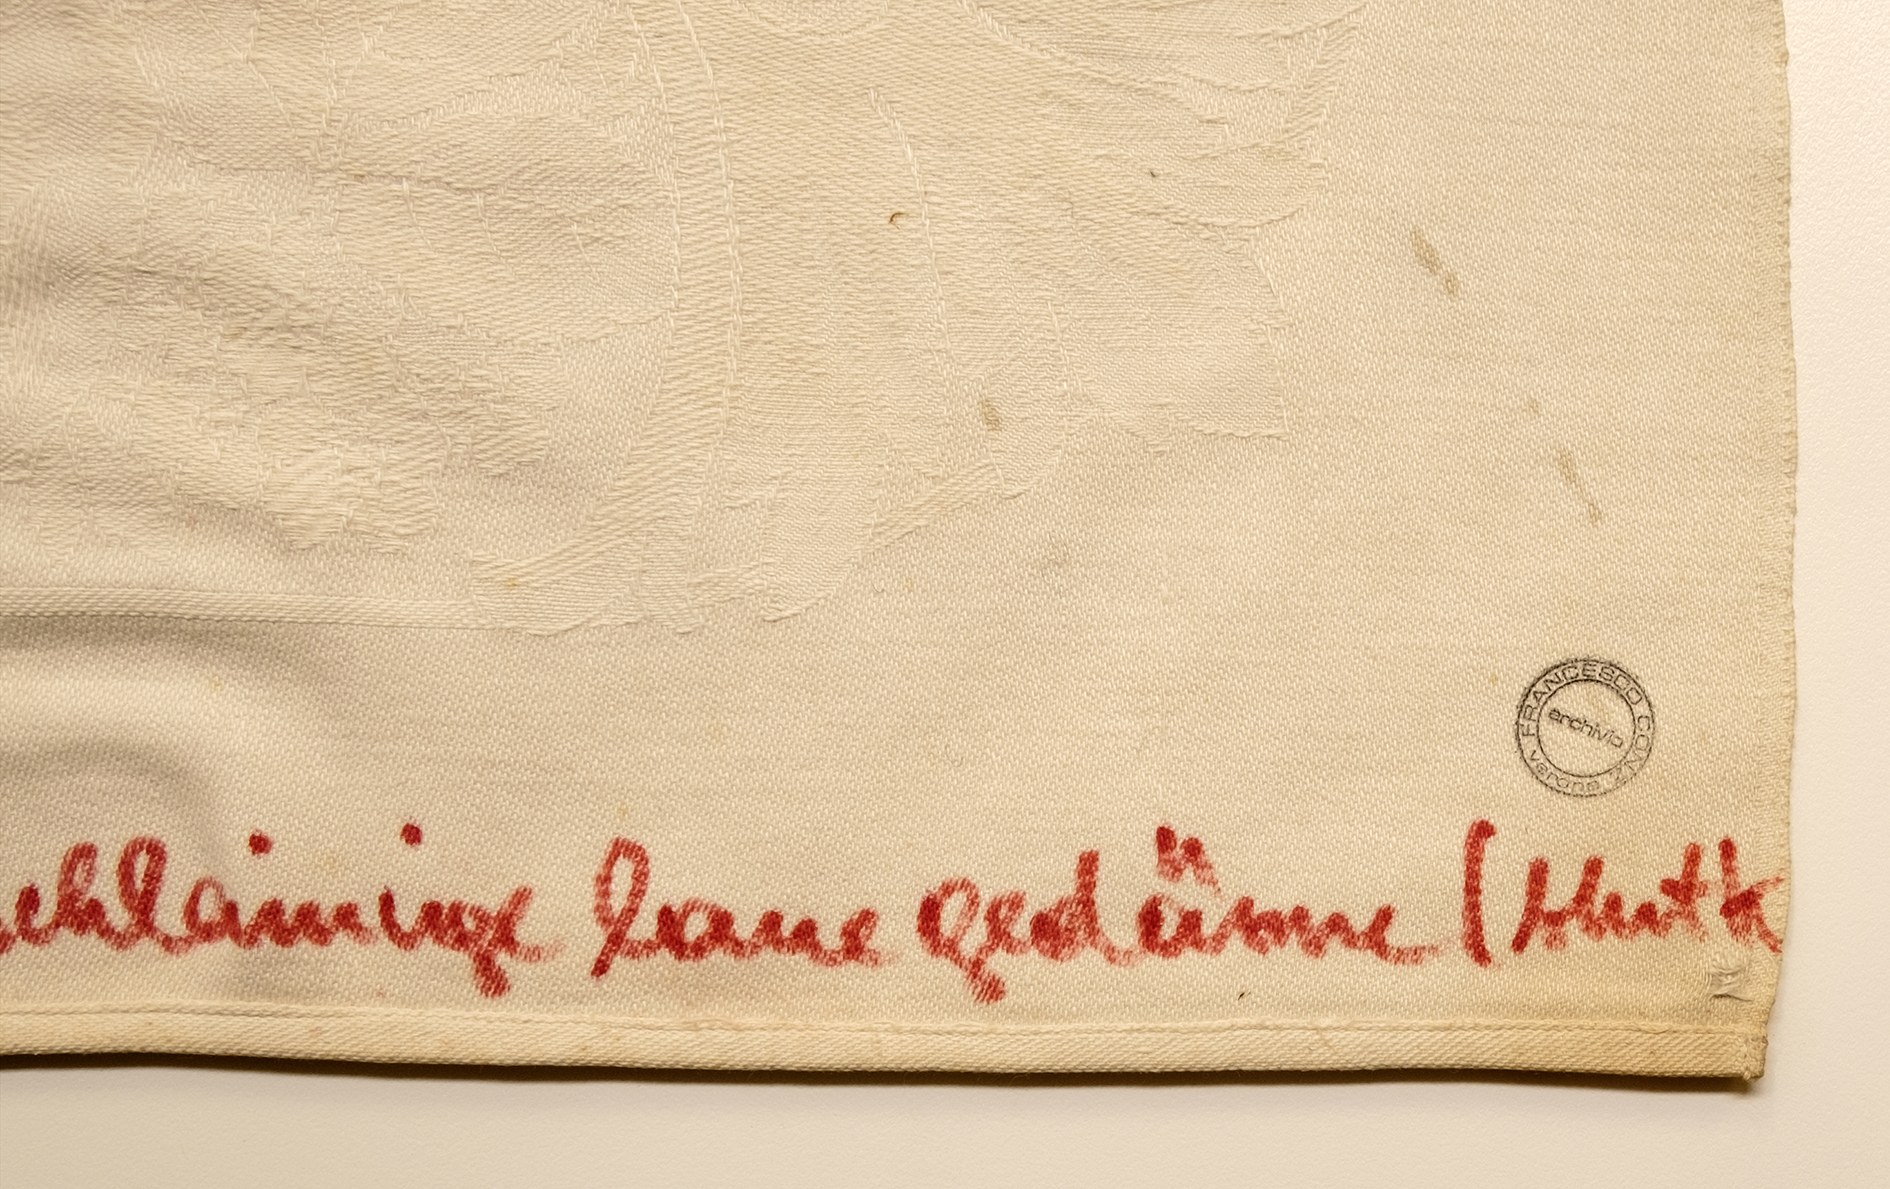 FRANCESCO CONZ
archivio
verona
schlaimige laue gedärme (